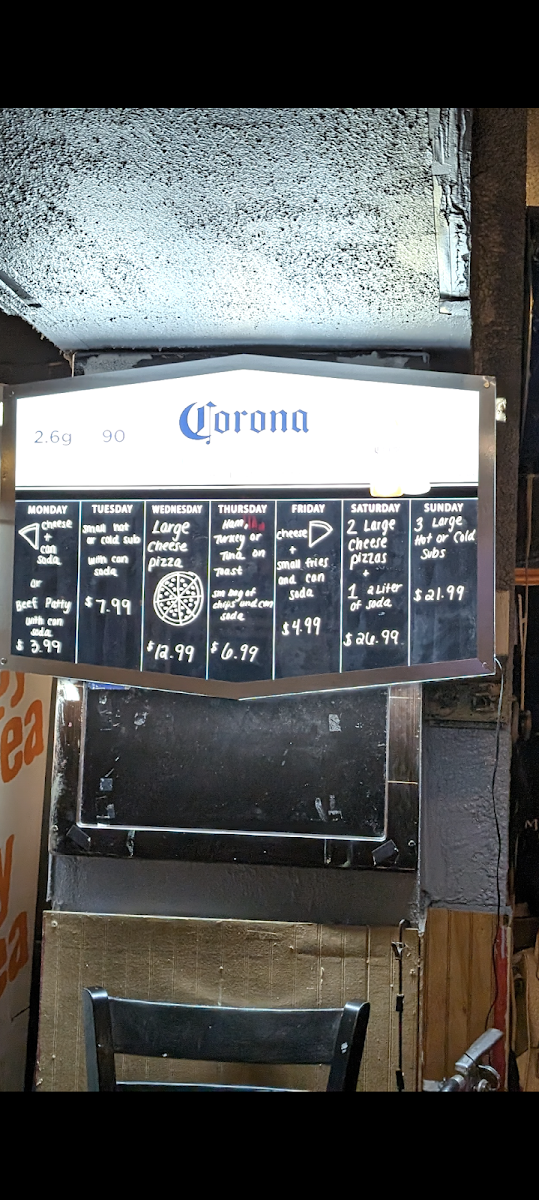 Corona
2.6g 90
MONDAY
cheese
+
can
soda
or
Beef Patty
with can
soda
$ 3.99
TUESDAY
small hot
or cold sub
with can
soda
$7.99
WEDNESDAY
Large
cheese
pizza
$12.99
THURSDAY
Ham,
Turkey or
Tuna on
Toast
sm bag of
chips and can
soda
$6.99
FRIDAY
cheese
+
small fries
and can
soda
$4.99
SATURDAY
2 Large
Cheese
pizzas
+
1 2 Liter
of soda
$26.99
SUNDAY
3 Large
Hot or Cold
Subs
$21.99
ea
y
ea
M